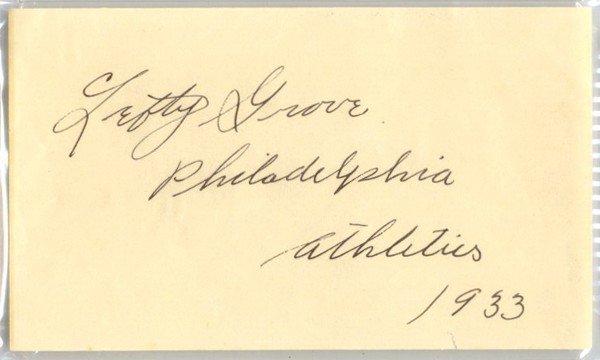 Lefty Grove
Philadelphia
Athletics
1933